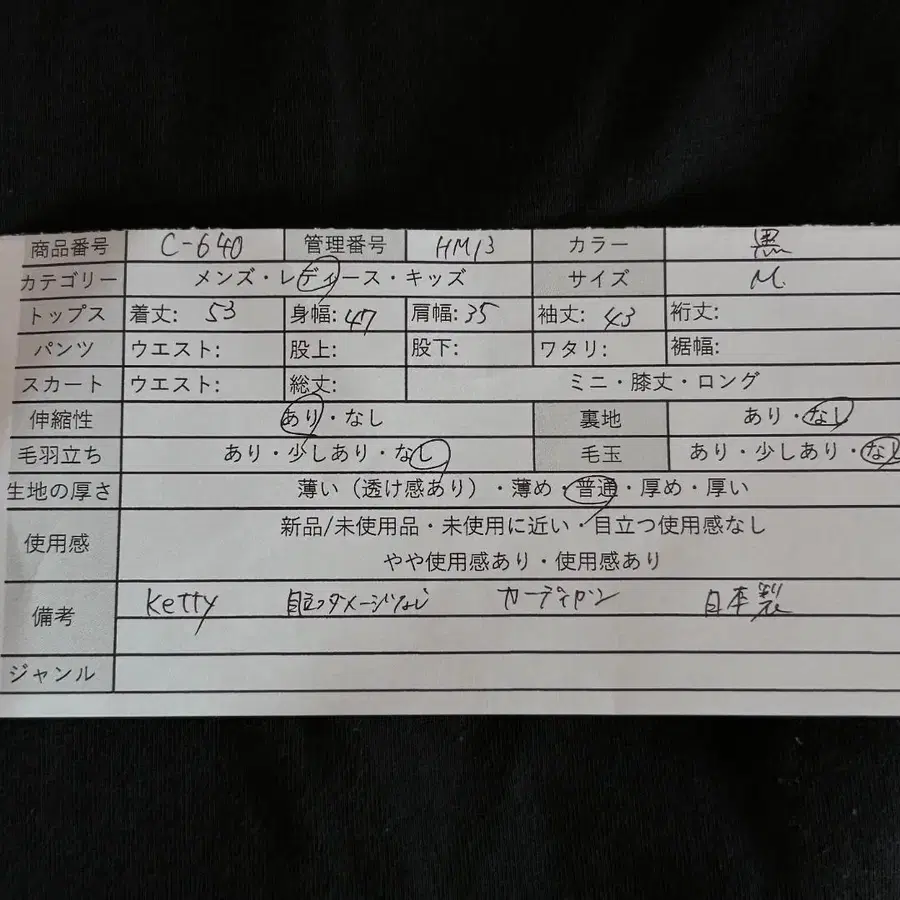 商品番号 C-640 管理番号 HM13 カラー 黒
カテゴリー メンズ・レディース・キッズ サイズ M
トップス 着丈: 53 身幅: 47 肩幅: 35 袖丈: 43 裄丈:
パンツ ウエスト: 股上: 股下: ワタリ: 裾幅:
スカート ウエスト: 総丈: ミニ・膝丈・ロング
伸縮性 あり・なし 裏地 あり・なし
毛羽立ち あり・少しあり・なし 毛玉 あり・少しあり・なし
生地の厚さ 薄い（透け感あり）・薄め・普通・厚め・厚い
使用感 新品/未使用品・未使用に近い・目立つ使用感なし
やや使用感あり・使用感あり
備考 Ketty 目立つダメージなし カーディガン 日本製
ジャンル